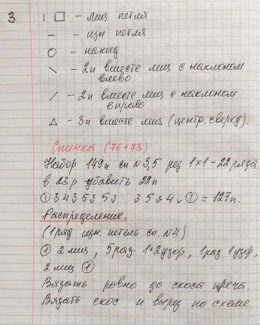 3 | □ - лиц петля
— - изн петля
○ - накид
\ - 2п вместе лиц с наклоном влево
/ - 2п вместе лиц с наклоном вправо
△ - 3п вместе лиц (центр. сверху).
Спинка (76+73)
Набор 149п сп N3,5 рез 1х1-22 ряда
в 23р убавить 22п
① 3 4 3 5 3 5 3 3 5 3 4 ① = 127п.
Распределение.
(1 ряд изн. петель сп. N4)
① 2 лиц, 5 раз 1+2 узор, 1 раз 1 узор,
2 лиц ①
Вязать ровно до скоса плеча.
Вязать скос и вырез по схеме.